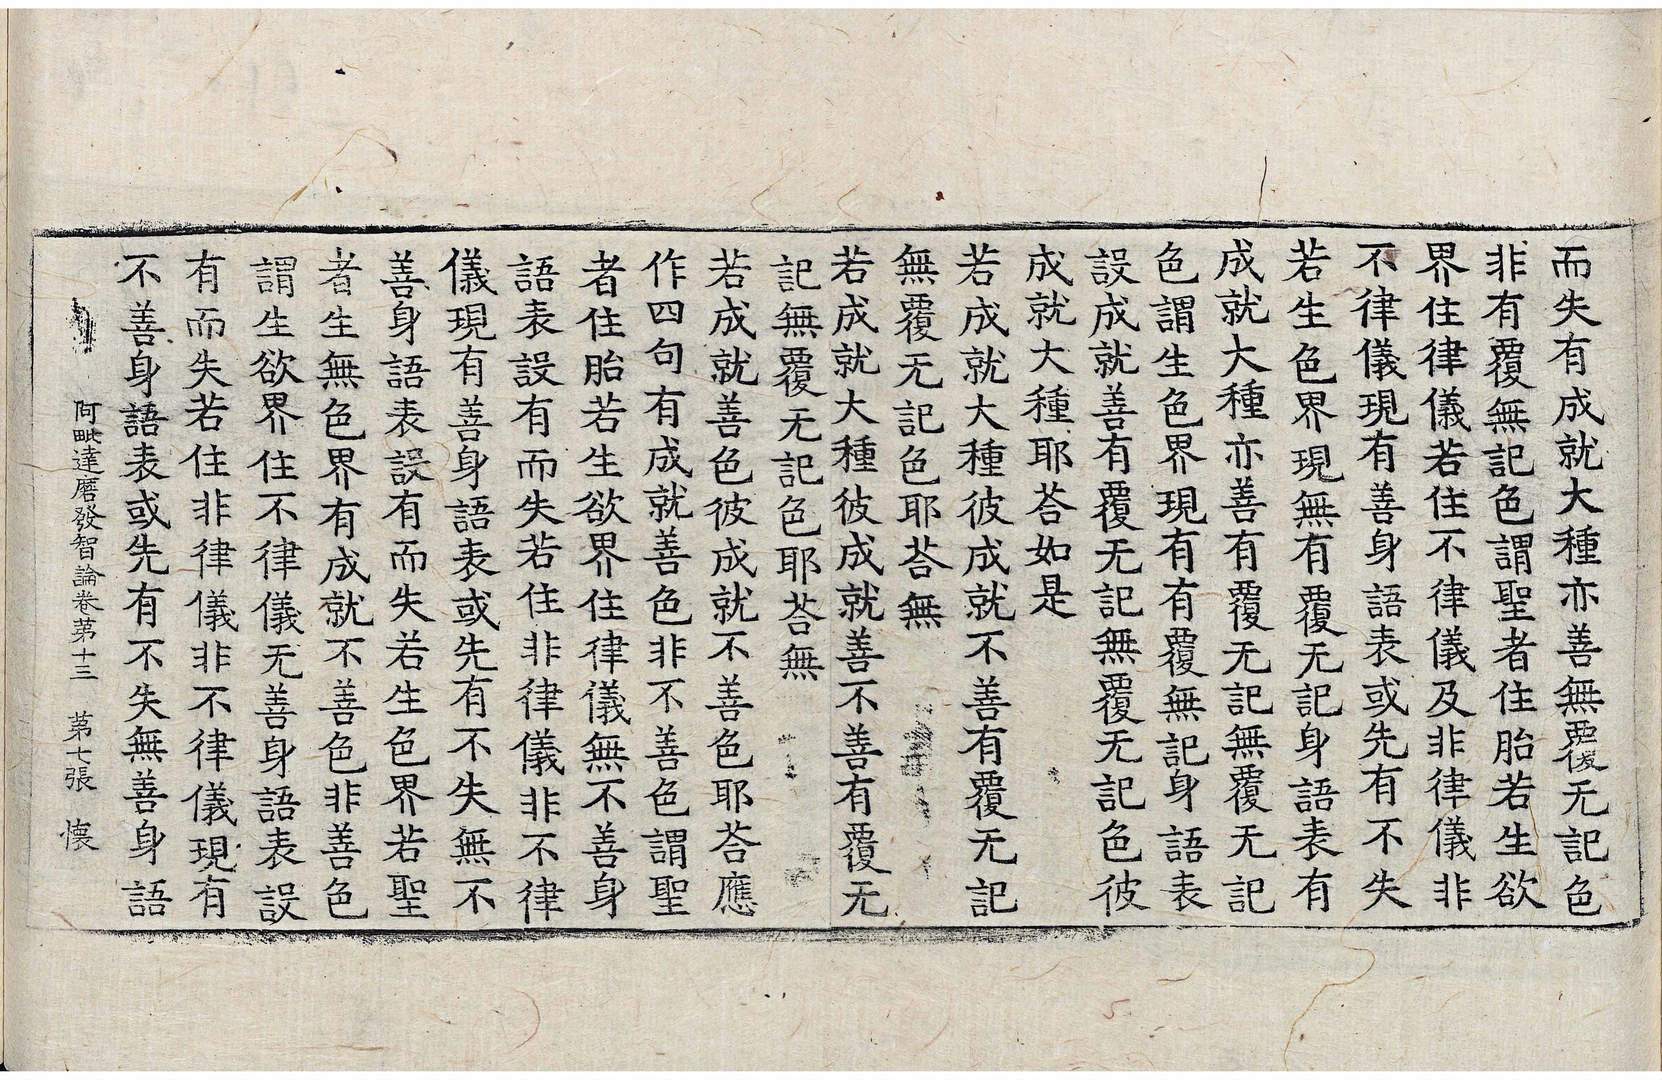 而失有成就大種亦善無覆无記色
非有覆無記色謂聖者住胎若生欲
界住律儀若住不律儀及非律儀非
不律儀現有善身語表或先有不失
若生色界現無有覆无記身語表有
成就大種亦善有覆无記無覆无記
色謂生色界現有有覆無記身語表
設成就善有覆无記無覆无記色彼
成就大種耶荅如是
若成就大種彼成就不善有覆无記
無覆无記色耶荅無
若成就大種彼成就善不善有覆无
記無覆无記色耶荅無
若成就善色彼成就不善色耶荅應
作四句有成就善色非不善色謂聖
者住胎若生欲界住律儀無不善身
語表設有而失若住非律儀非不律
儀現有善身語表或先有不失無不
善身語表設有而失若生色界若聖
者生無色界有成就不善色非善色
謂生欲界住不律儀无善身語表設
有而失若住非律儀非不律儀現有
不善身語表或先有不失無善身語
阿毗達磨發智論卷第十三 第七張 懷